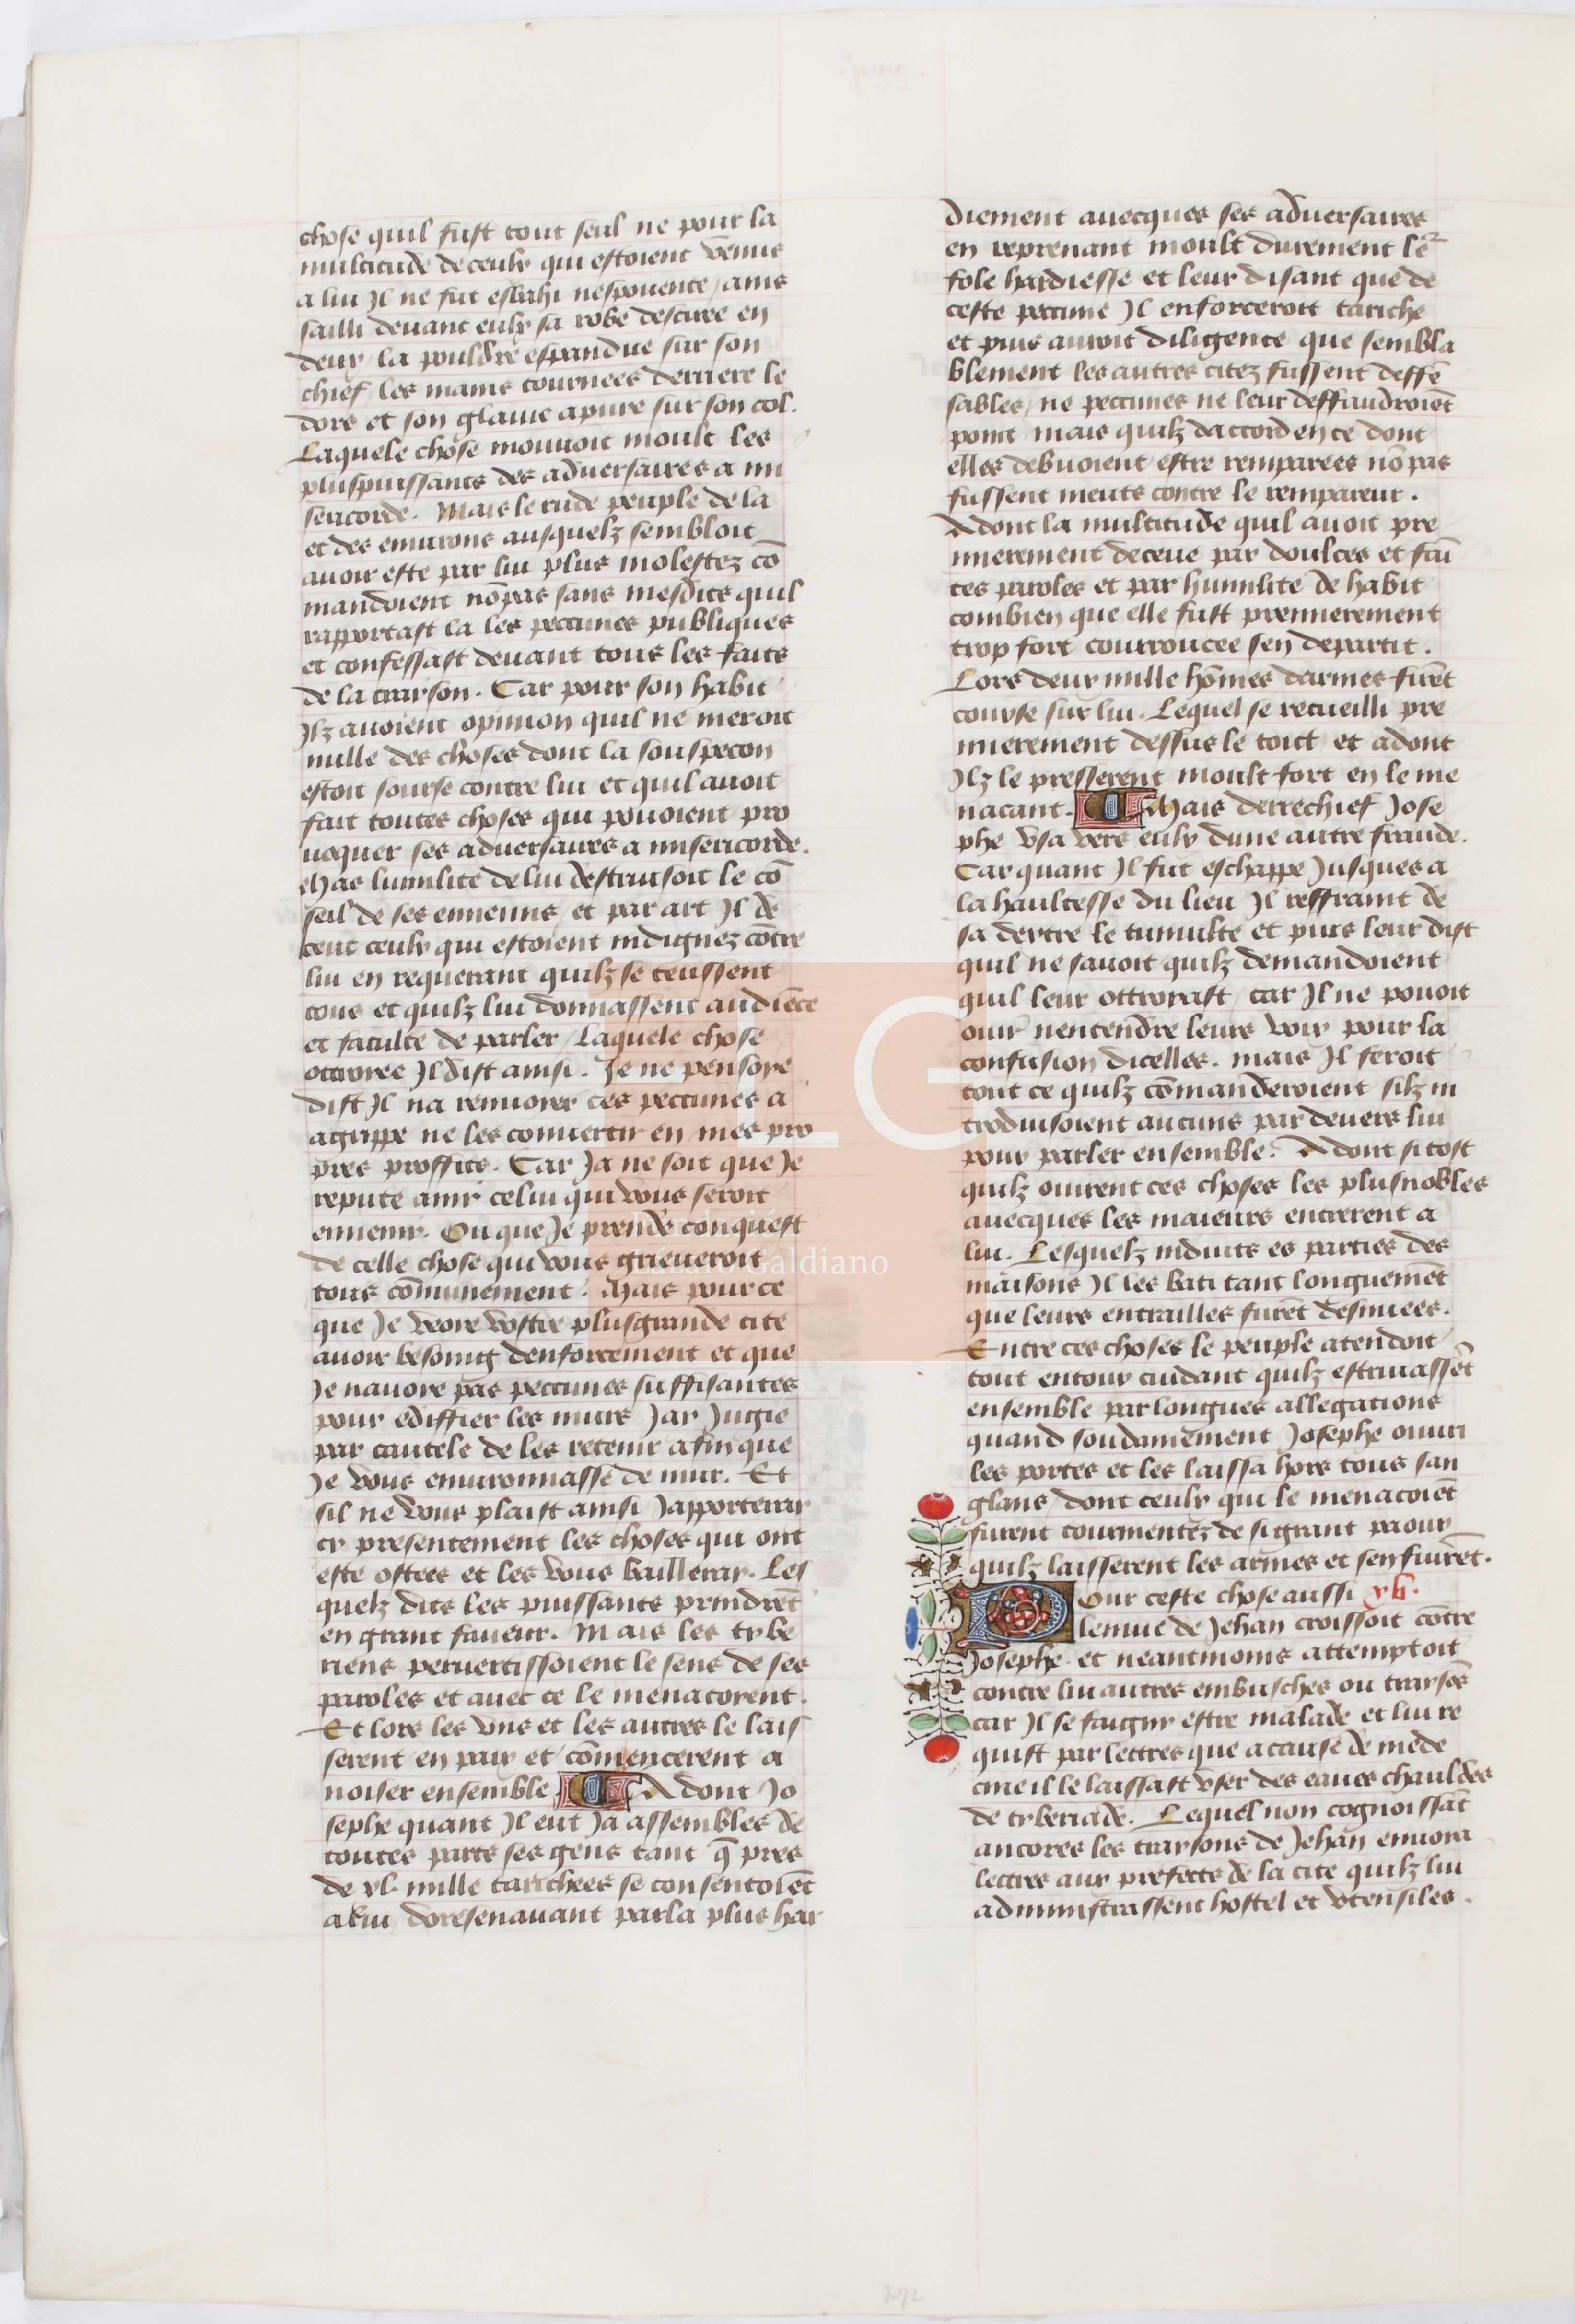 chose quil fust tout seul ne pour la
multitude de ceulx qui estoient venus
a lui Il ne fut esbahi nespouente / ains
sailli deuant eulx sa robe desciree en
deux / la pouldre espandue sur son
chief / les mains tournees derriere le
dors et son glaiue apuie sur son col.
Laquele chose mouuoit moult les
pluspuissans des aduersaires a mi
sericorde. Mais le rude peuple de la
et des enuirons ausquelz sembloit
auoir este par lui plus molestez cō
mandoient nō pas sans mesdits quil
rapportast la les peccunes publiques
et confessast deuant tous les fais
de la traison. Car pour son habit
Ilz auoient opinion quil ne nieroit
nulle des choses dont la souspecon
estoit sourse contre lui et quil auoit
fait toutes choses qui pouoient pro
uoquer ses aduersaires a misericorde.
Mais lumilite de lui destruisoit le cō
seil de ses ennemis et par art Il de
ceut ceulx qui estoient indignez cōtre
lui en requerant quilz se teussent
tous et quilz lui donnassent audiēce
et faculte de parler / Laquele chose
ottroiee Il dist ainsi. Je ne pensoye
dist Il na renuoier ces peccunes a
agrippe ne les conuertir en mes pro
pres proffits. Car Ja ne soit que Je
repute amy celui qui vous seroit
ennemy. Ou que Je prende conquest
de celle chose qui vous grieueroit
tous cōmunement. Mais pource
que Je veoie vostre plusgrande cite
auoir besoing denforcement et que
Je nauoie pas peccunes suffisantes
pour ediffier les murs Jay Jugie
par cautele de les retenir afin que
Je vous enuironnasse de mur. Et
sil ne vous plaist ainsi Japporteray
cy presentement les choses qui ont
este ostees et les vous bailleray. Les
quelz dits les puissants prindrēt
en grant faueur. Mais les tybe
riens peruertissoient le sens de ses
paroles et auec ce le menacoient.
Et lors les vns et les autres le lais
serent en paix et cōmencerent a
noiser ensemble. Adont Jo
sephe quant Il eut Ja assembles de
toutes pars ses gens tant q̄ pres
de xl. mille tarichees se consentoiēt
a lui / doresenauant parla plus har
diement auecques ses aduersaires
en reprenant moult durement le²
fole hardiesse et leur disant que de
ceste peccune Il enforceroit tariche
et puis auroit diligence que sembla
blement les autres citez fussent deffē
sables / ne peccunes ne leur deffaudroiēt
point mais quilz daccord en ce dont
elles debuoient estre remparees nō pas
fussent meuts contre le rempareur.
Adont la multitude quil auoit pre
mierement deceue par doulces et fain
tes paroles et par humilite de habit
combien que elle fust premierement
trop fort courroucee sen departit.
Lors deux mille hōmes darmes firēt
course sur lui. Lequel se recueilli pre
mierement dessus le toict et adont
Ilz le presserent moult fort en le me
nacant. Mais derrechief Jose
phe vsa vers eulx dune autre fraude.
Car quant Il fut eschappe Jusques a
la haultesse du lieu Il reffraint de
sa dextre le tumulte et puis leur dist
quil ne sauoit quilz demandoient
quil leur ottroiast / car Il ne pouoit
ouir nentendre leurs voix pour la
confusion dicelles. mais Il feroit
tout ce quilz cōmanderoient silz in
troduisoient aucuns par deuers lui
pour parler ensemble. Adont sitost
quilz ouirent ces choses les plusnobles
auecques les maieurs entrerent a
lui. Lesquelz induits es parties des
maisons Il les bati tant longuemēt
que leurs entrailles furēt desnuees.
Entre ces choses le peuple atendoit
tout entour cuidant quilz estriuassēt
ensemble par longues allegations
quand soudainement Josephe ouuri
les portes et les laissa hors tous san
glans / dont ceulx qui le menacoiēt
furent tourmentez de si grant paour
quilz laisserent les armes et senfuirēt.
Pour ceste chose aussi xvi.
lenuie de Jehan croissoit cōtre
Josephe. et neantmoins attemptoit
contre lui autres embusches ou traisōs
car Il se faigny estre malade et lui re
quist par lettres que a cause de mede
cine il le laissast vser des eaues chauldes
de tyberiade. Lequel non cognoissāt
ancores les traysons de Jehan enuoia
lettres aux prefects de la cite quilz lui
administrassent hostel et vtensiles.
LG
Lázaro Galdiano